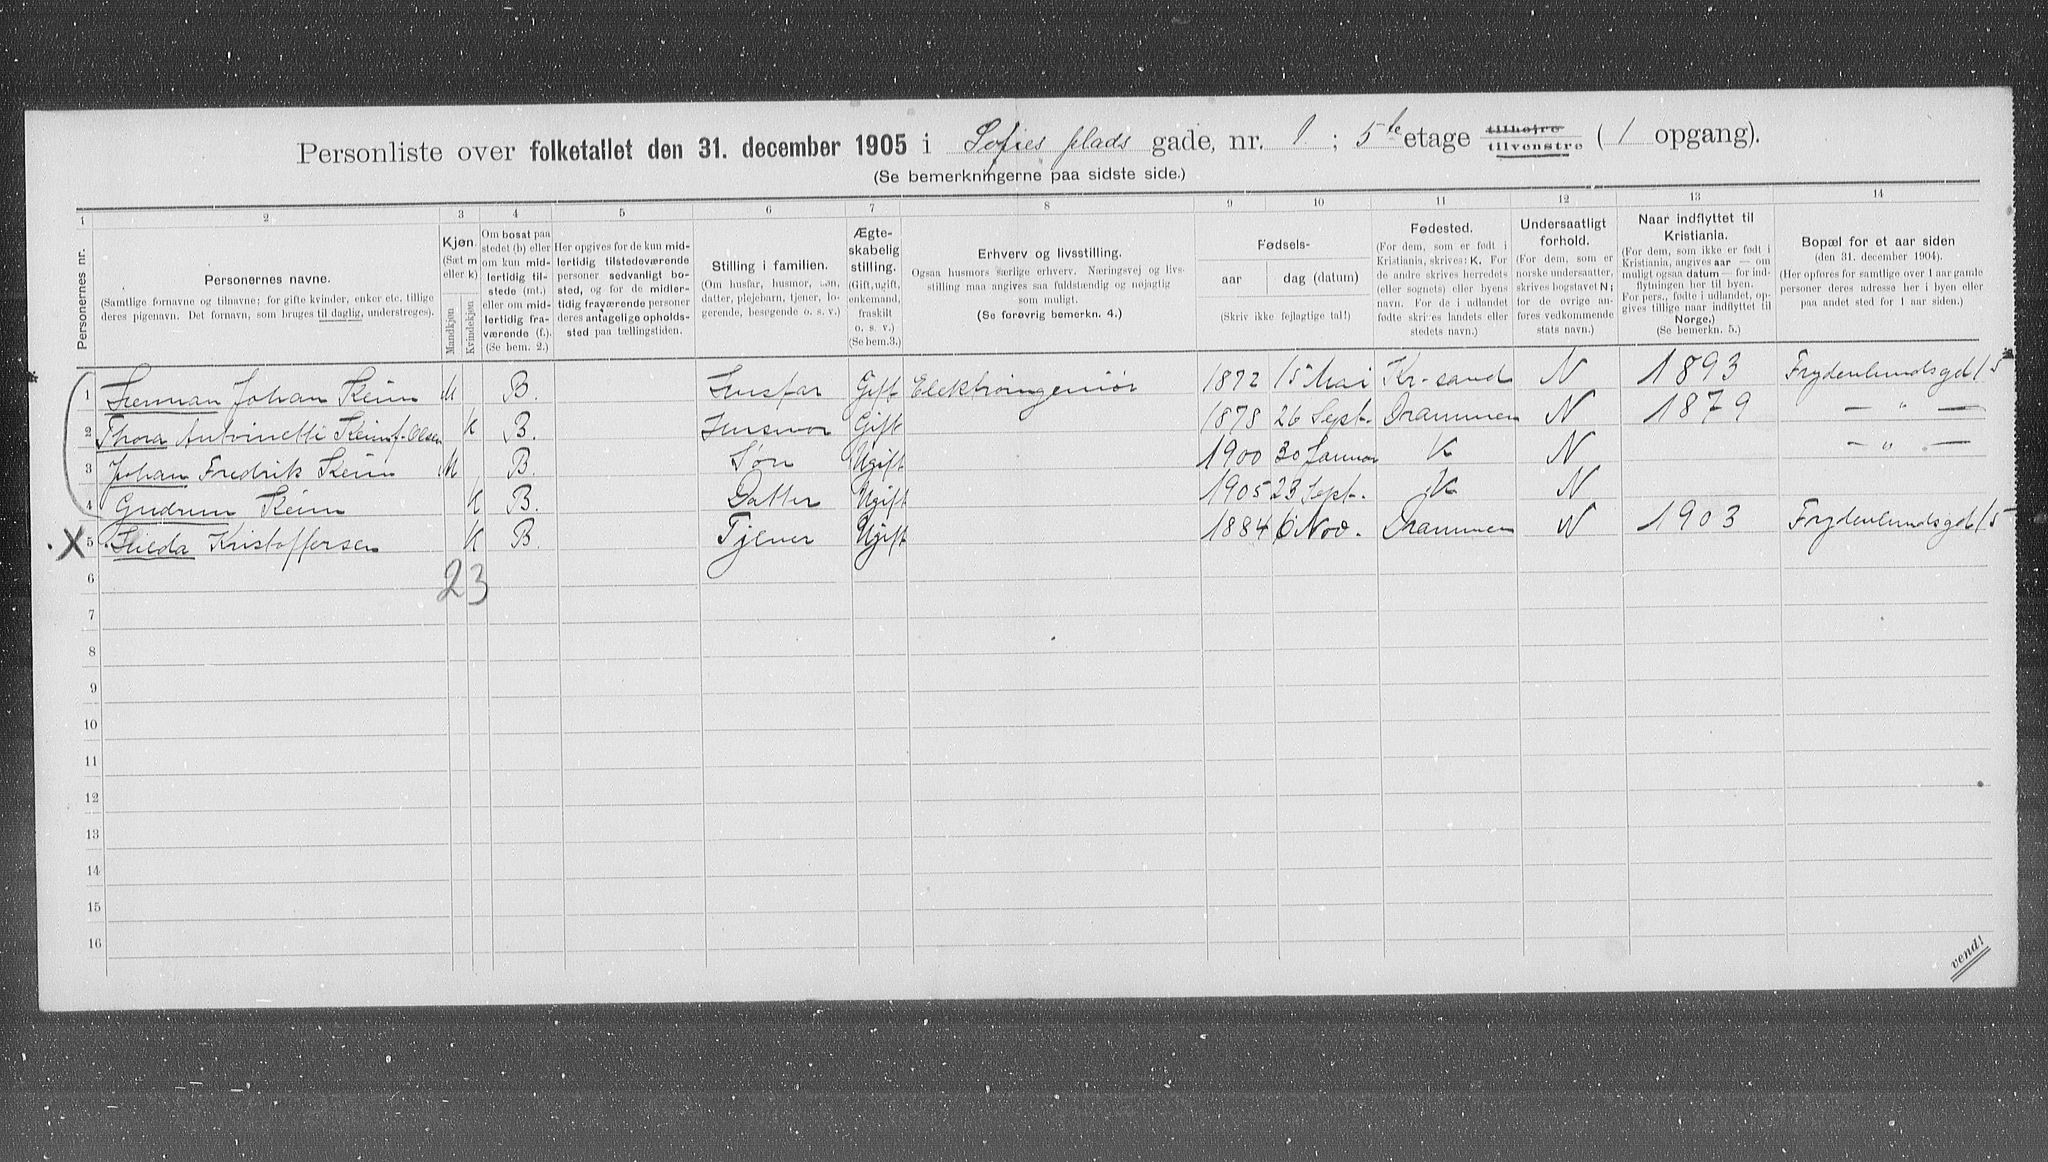 Personliste over folketallet den 31. december 1905 i Sofies plads gade, nr. 1 ; 5te etage tilhøjre tilvenstre ( 1 opgang).
(Se bemerkningerne paa sidste side.)
1 2 3 4 5 6 7 8 9 10 11 12 13 14
Personernes nr.
Personernes navne.
(Samtlige fornavne og tilnavne; for gifte kvinder, enker etc. tillige
deres pigenavn. Det fornavn, som bruges til daglig, understreges).
Kjøn.
(Sæt m
eller k)
Mandkjøn
Kvindekjøn
Om bosat paa
stedet (b) eller
om kun mid-
lertidig til-
stede (mt.)
eller om mid-
lertidig fra-
værende (f.).
(Se bem. 2.)
Her opgives for de kun mid-
lertidig tilstedeværende
personer sedvanligt bo-
sted, og for de midler-
tidig fraværende personer
deres antagelige opholds-
sted paa tællingstiden.
Stilling i familien.
(Om husfar, husmor, søn,
datter, plejebarn, tjener, lo-
gerende, besøgende o. s. v.)
Ægte-
skabelig
stilling.
(Gift, ugift,
enkemand,
fraskilt
o. s. v.)
(Se bem.3.)
Erhverv og livsstilling.
Ogsaa husmors særlige erhverv. Næringsvej og livs-
stilling maa angives saa fuldstændig og nøjagtig
som muligt.
(Se forøvrig bemerkn. 4.)
Fødsels-
aar dag (datum)
(Skriv ikke fejlagtige tal!)
Fødested.
(For dem, som er født i
Kristiania, skrives: K. For
de andre skrives herredets
(eller sognets) eller byens
navn. For de i udlandet
fødte skrives landets eller
stedets navn.)
Undersaatligt
forhold.
(For dem, som er
norske undersaatter,
skrives bogstavet N;
for de øvrige an-
føres vedkommende
stats navn.)
Naar indflyttet til
Kristiania.
(For dem, som ikke er født i
Kristiania, angives aar — om
muligt ogsaa datum — for ind-
flytningen her til byen.
For pers., fødte i udlandet, op-
gives tillige naar indflyttet til
Norge,)
(Se bemerkn. 5.)
Bopæl for et aar siden
(den 31. december 1904).
(Her opføres for samtlige over 1 aar gamle
personer deres adresse her i byen eller
paa andet sted for 1 aar siden.)
1 Herman Johan Keim M B. Husfar Gift Elektroingeniør 1872 15 Mai Kr-sand N 1893 Frydenlundsgd 15
2 Thora Antoinetti Keim f. Olsen K B. Husmor Gift 1878 26 Sept. Drammen N 1879 — " —
3 Johan Fredrik Keim M B. Søn Ugift 1900 30 Januar K N — " —
4 Gudrun Keim K B. Datter Ugift 1905 23 Sept. K N
X 5 Hilda Kristoffersen K B. Tjener Ugift 1884 6 Nov. Drammen N 1903 Frydenlundsgd 15
6 2 3
7
8
9
10
11
12
13
14
15
16
vend!